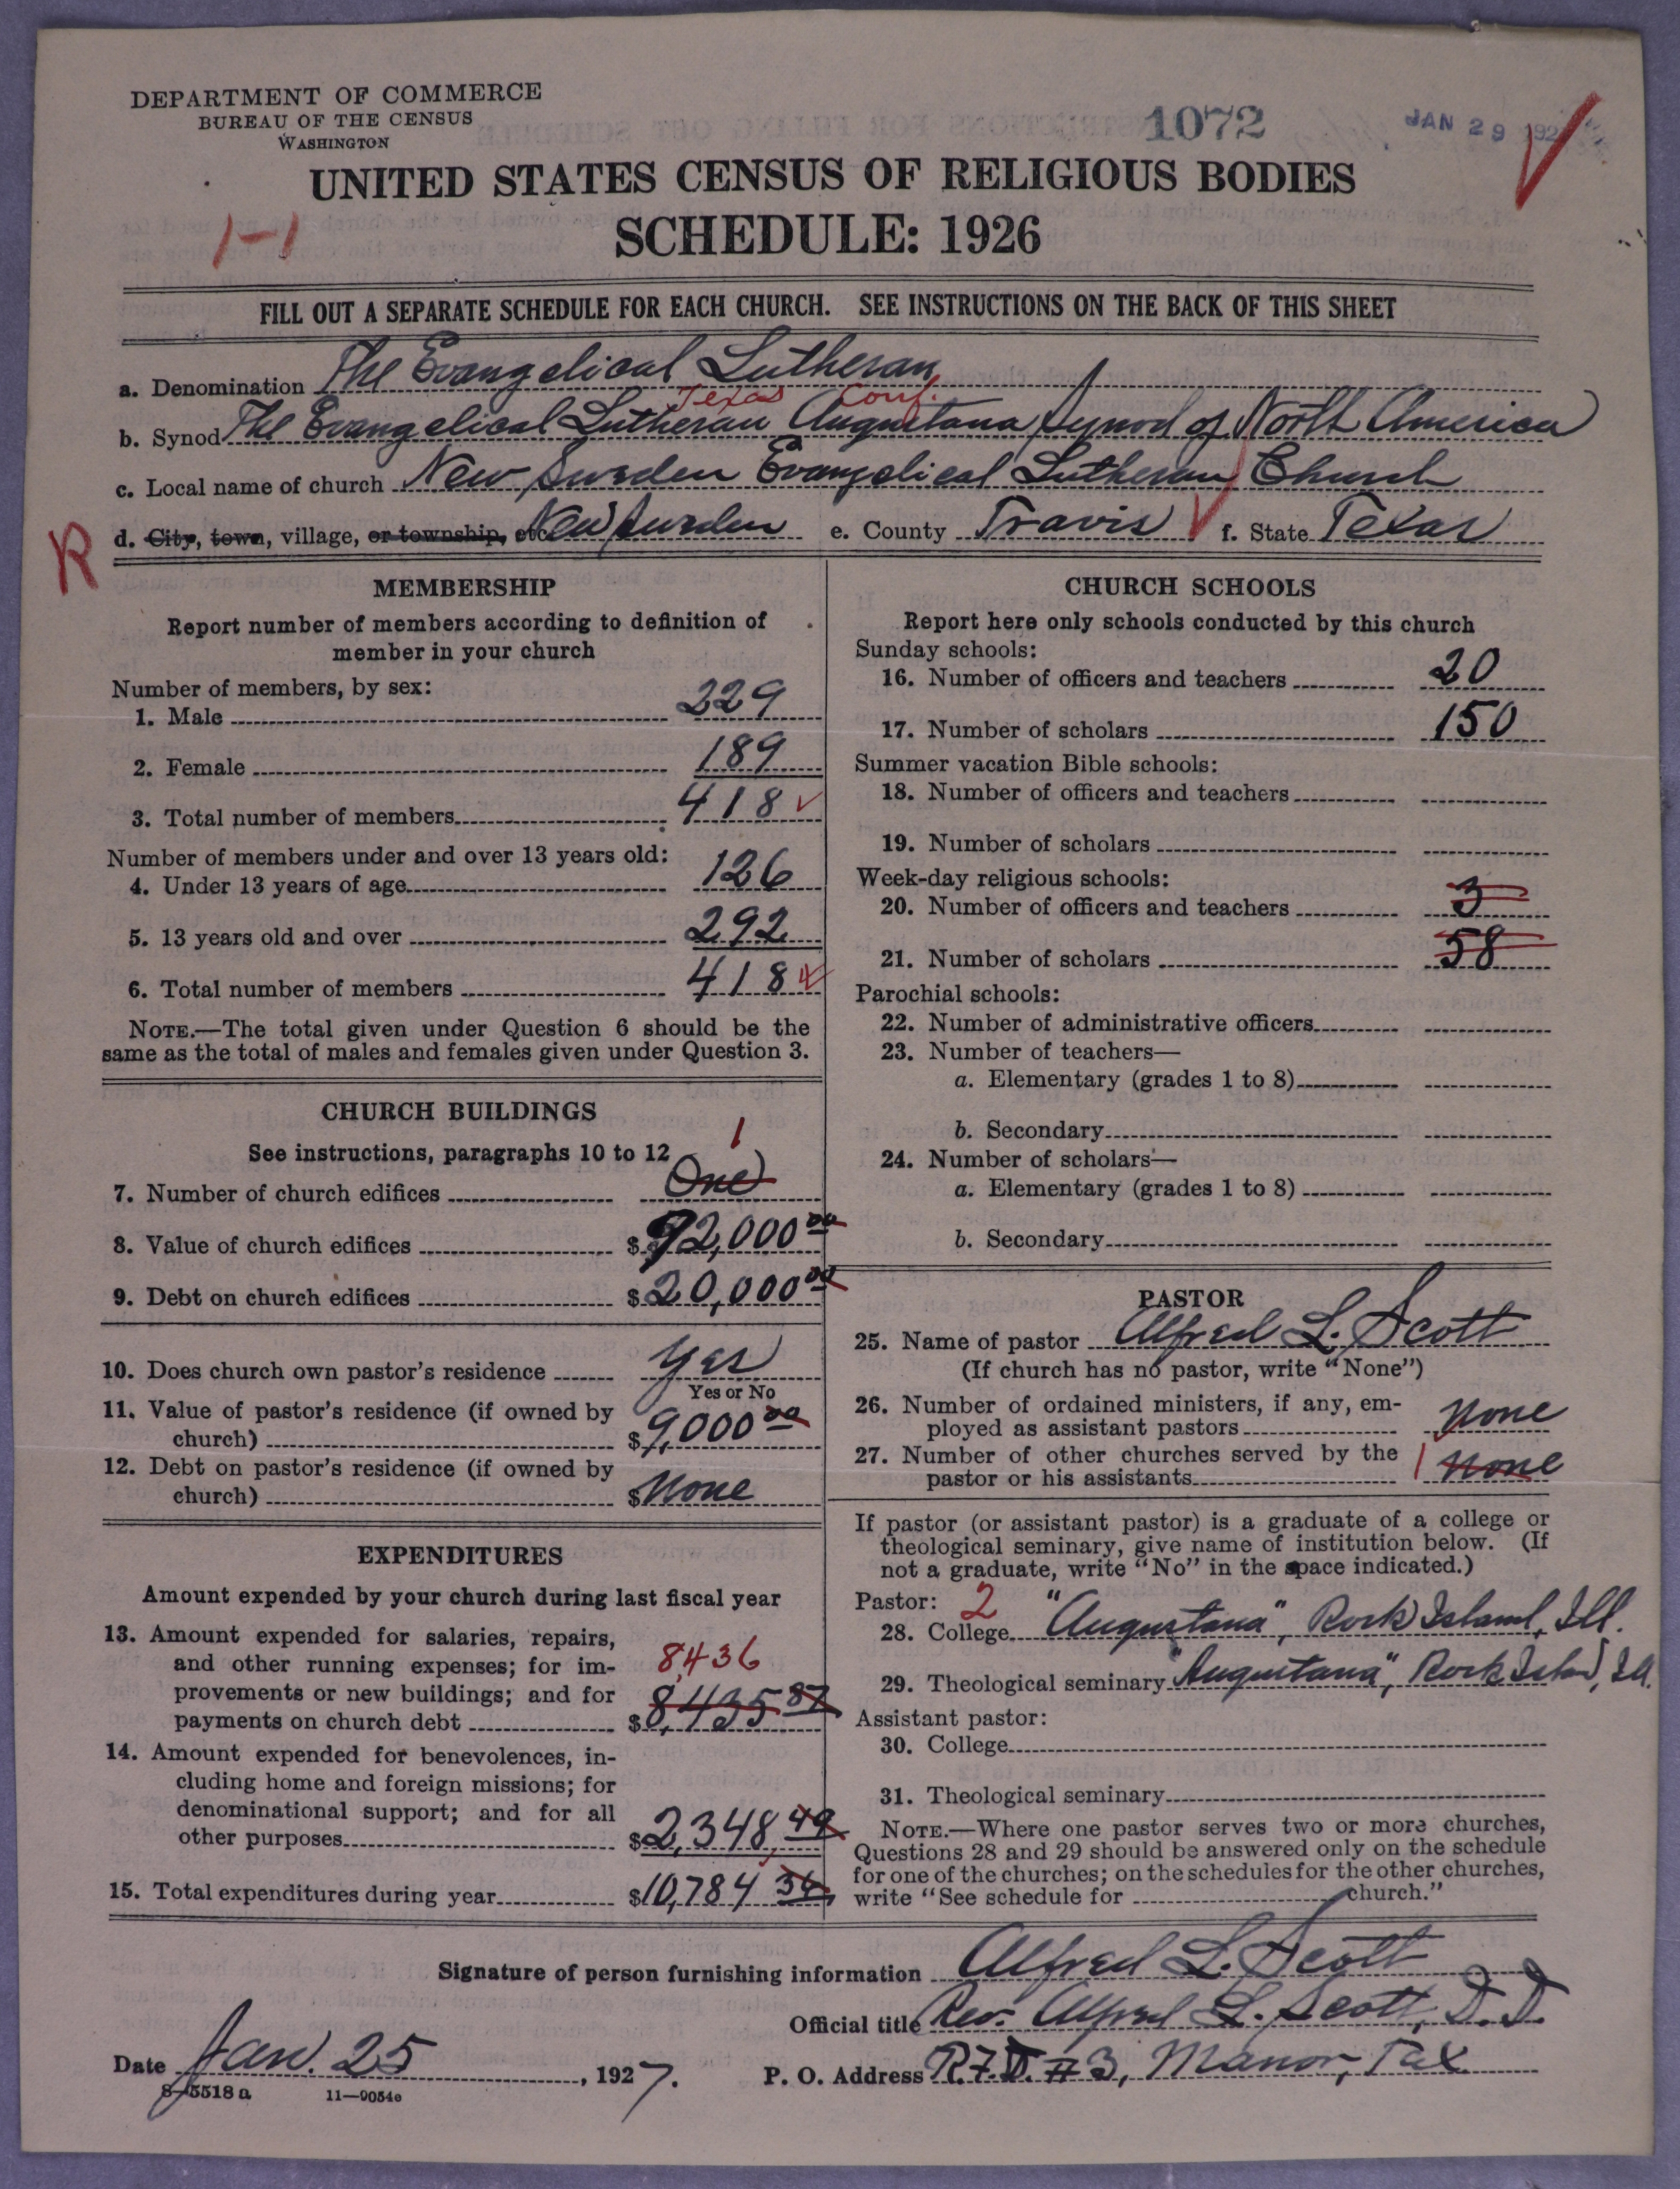 DEPARTMENT OF COMMERCE
BUREAU OF THE CENSUS
WASHINGTON
1072
JAN 29 192
UNITED STATES CENSUS OF RELIGIOUS BODIES
1-1
SCHEDULE: 1926
FILL OUT A SEPARATE SCHEDULE FOR EACH CHURCH. SEE INSTRUCTIONS ON THE BACK OF THIS SHEET
a. Denomination The Evangelical Lutheran
Texas Conf.
b. Synod The Evangelical Lutheran Augustana Synod of North America
c. Local name of church New Sweden Evangelical Lutheran Church
R d. City, town, village, or township, etc. New Sweden e. County Travis f. State Texas
MEMBERSHIP
Report number of members according to definition of
member in your church
Number of members, by sex:
1. Male 229
2. Female 189
3. Total number of members 418
Number of members under and over 13 years old:
4. Under 13 years of age 126
5. 13 years old and over 292
6. Total number of members 418
NOTE.—The total given under Question 6 should be the
same as the total of males and females given under Question 3.
CHURCH BUILDINGS
See instructions, paragraphs 10 to 12
1
7. Number of church edifices One
8. Value of church edifices $ 92,000 00
9. Debt on church edifices $ 20,000 00
10. Does church own pastor's residence Yes
Yes or No
11. Value of pastor's residence (if owned by
church) $ 9,000 00
12. Debt on pastor's residence (if owned by
church) $ None
EXPENDITURES
Amount expended by your church during last fiscal year
13. Amount expended for salaries, repairs,
and other running expenses; for im- 8,436
provements or new buildings; and for
payments on church debt $ 8,435 87
14. Amount expended for benevolences, in-
cluding home and foreign missions; for
denominational support; and for all
other purposes $ 2,348,49
15. Total expenditures during year $ 10,784 36
CHURCH SCHOOLS
Report here only schools conducted by this church
Sunday schools:
16. Number of officers and teachers 20
17. Number of scholars 150
Summer vacation Bible schools:
18. Number of officers and teachers
19. Number of scholars
Week-day religious schools:
20. Number of officers and teachers 3
21. Number of scholars 58
Parochial schools:
22. Number of administrative officers
23. Number of teachers—
a. Elementary (grades 1 to 8)
b. Secondary
24. Number of scholars—
a. Elementary (grades 1 to 8)
b. Secondary
PASTOR
25. Name of pastor Alfred L. Scott
(If church has no pastor, write "None")
26. Number of ordained ministers, if any, em-
ployed as assistant pastors None
27. Number of other churches served by the
pastor or his assistants 1 None
If pastor (or assistant pastor) is a graduate of a college or
theological seminary, give name of institution below. (If
not a graduate, write "No" in the space indicated.)
Pastor: 2
28. College "Augustana", Rock Island, Ill.
29. Theological seminary "Augustana", Rock Island, Ill.
Assistant pastor:
30. College
31. Theological seminary
NOTE.—Where one pastor serves two or more churches,
Questions 28 and 29 should be answered only on the schedule
for one of the churches; on the schedules for the other churches,
write "See schedule for church."
Signature of person furnishing information Alfred L. Scott
Official title Rev. Alfred L. Scott, D.D.
Date Jan. 25, 1927. P. O. Address R.F.D. #3, Manor, Tex
8-5518 a 11—9054e